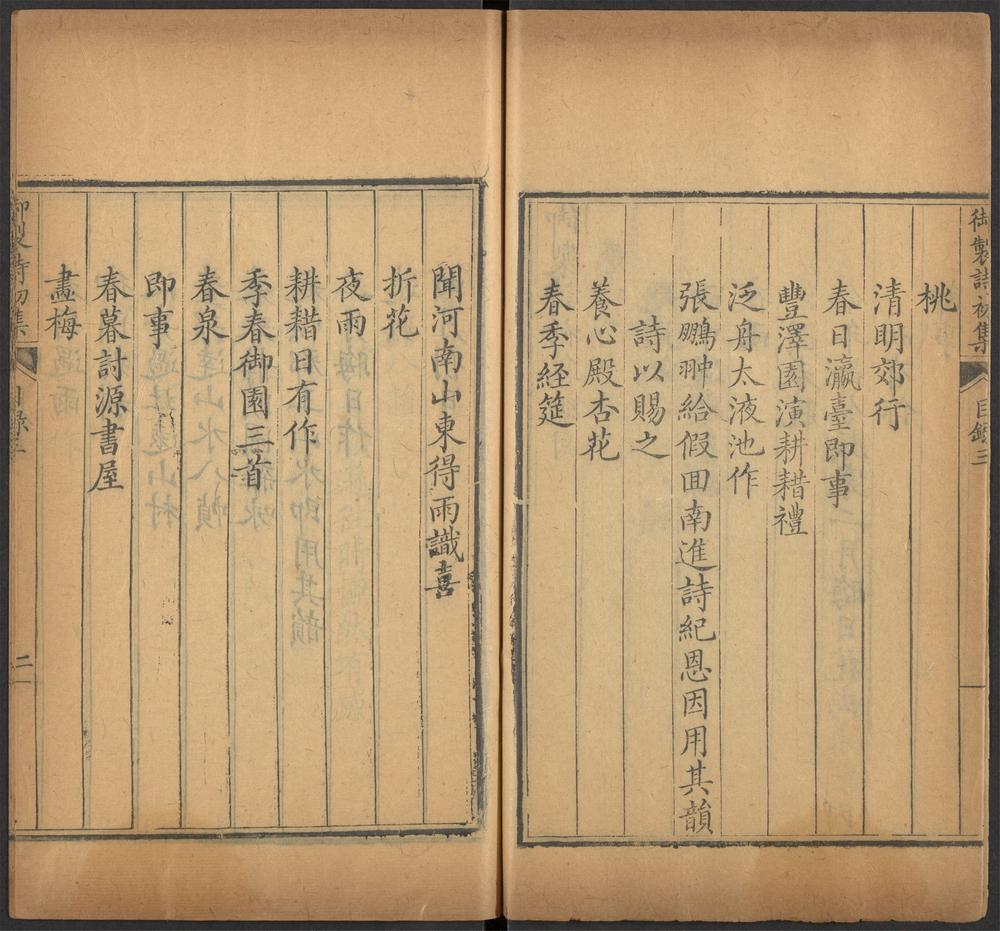 御製詩初集
目錄三
桃
清明郊行
春日瀛臺即事
豐澤園演耕耤禮
泛舟太液池作
張鵬翀給假囬南進詩紀恩因用其韻
詩以賜之
養心殿杏花
春季経筵
聞河南山東得雨識喜
折花
夜雨
耕耤日有作
季春御園三首
春泉
即事
春暮討源書屋
畫梅
御製詩初集
目錄三
二